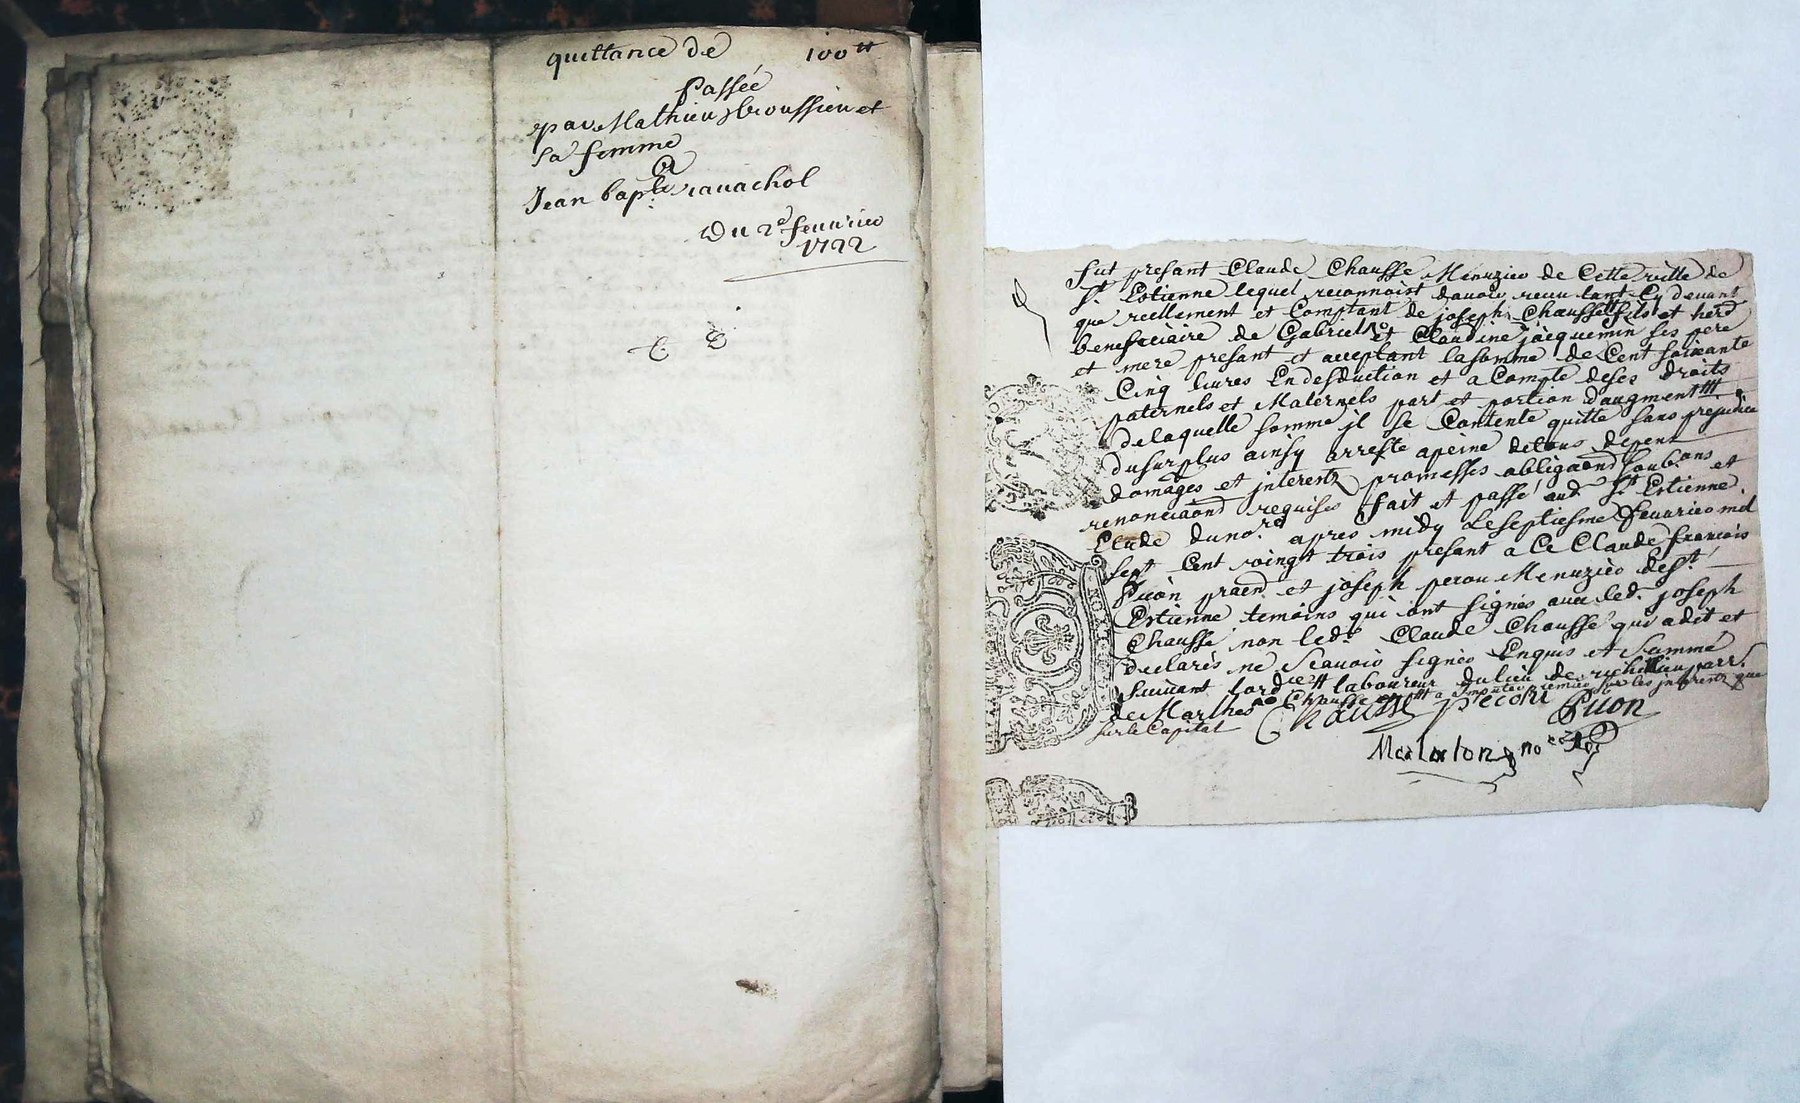 quittance de 100 tt
Passée
par Mathieu broussieu et
sa femme
a
Jean bap.te ravachol
Du 2e feuvrier
1722
fut presant Claude Chausse Menuzier de Cette ville de
St. Estienne lequel reconnoist davoir receu tant Cy devant
que reellement et Comptant de joseph Chausse fils et herd
beneficiaire de Gabriel et Claudine jacquemin ses pere
et mere presant et acceptant la somme de Cent soixante
Cinq livres En desduction et a Compte de ses droits
paternels et Maternels part et portion d'augment
de laquelle somme il se Contente quitte sans prejudice
du surplus ainsy arresté a peine de tous depens
domages et interestz promesses obligaõns soub.ons et
renonciaõns requises fait et passé aud. St Estienne
Etude du no.re apres midy Le septiesme feuvrier mil
sept Cent vingt trois presant a Ce Claude francois
Puon pratn. et joseph perou Menuzier de St.
Estienne temoins qui ont signés avec led. joseph
Chausse non led. Claude Chausse qui a dit et
declarés ne Scavoir signer Enquis et Sommé
suivant l'ord.ce laboureur du lieu de parr.
de Marlhes a imputer premier sur les interestz que
sur le Capital
Chausse Puon
Matalon no.re